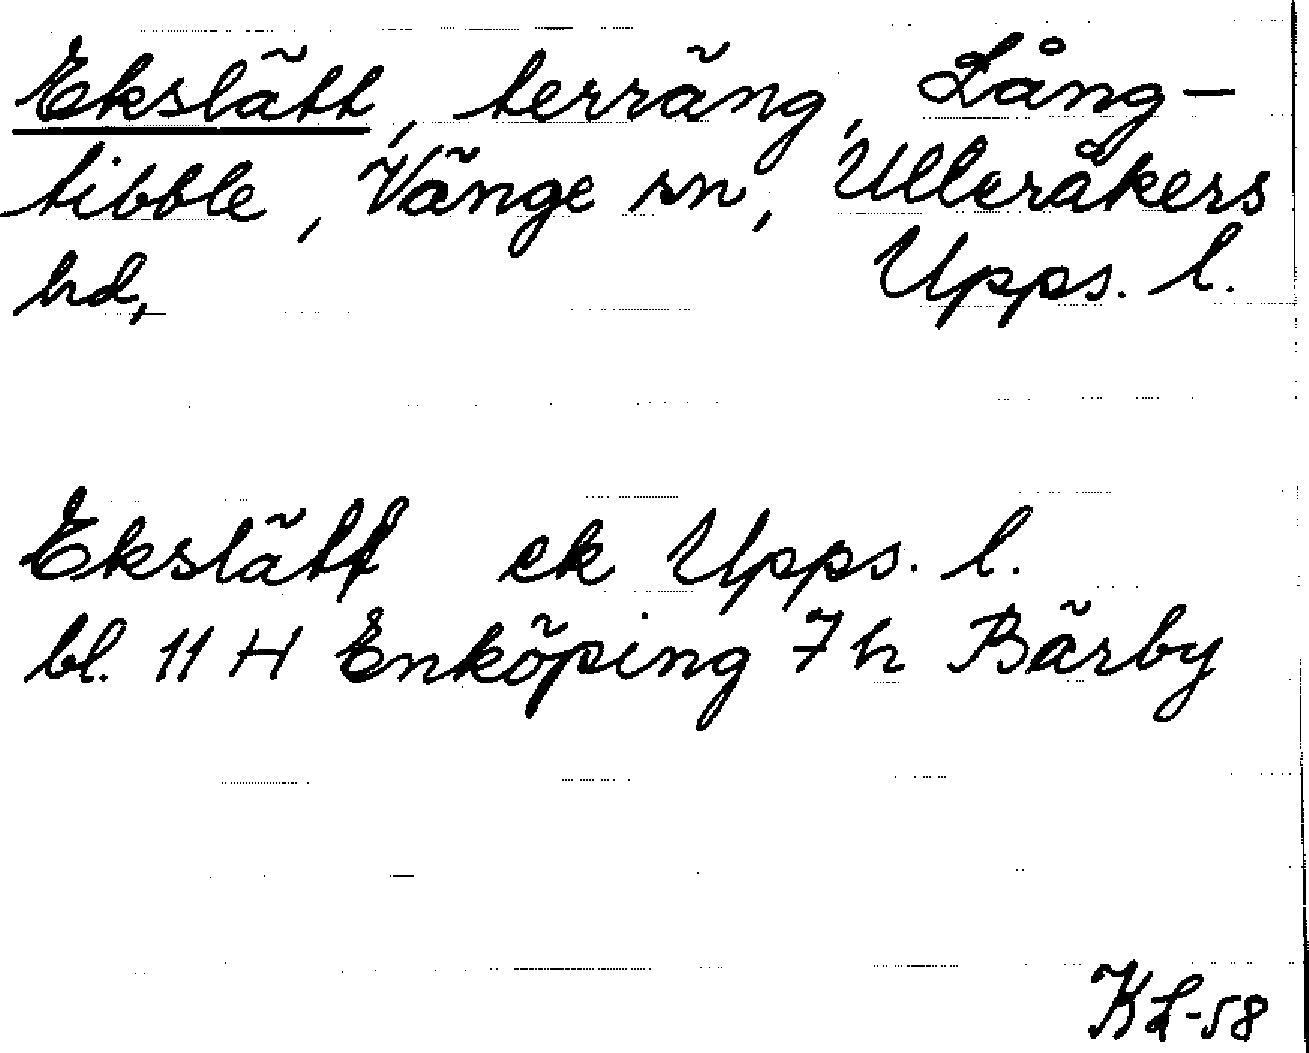 Ekslätt, terräng, Lång-
tibble, Vänge sn, Ulleråkers
hd, Upps. l.
Ekslätt ek Upps. l.
bl. 11 H Enköping 7 h Bärby
KL-58